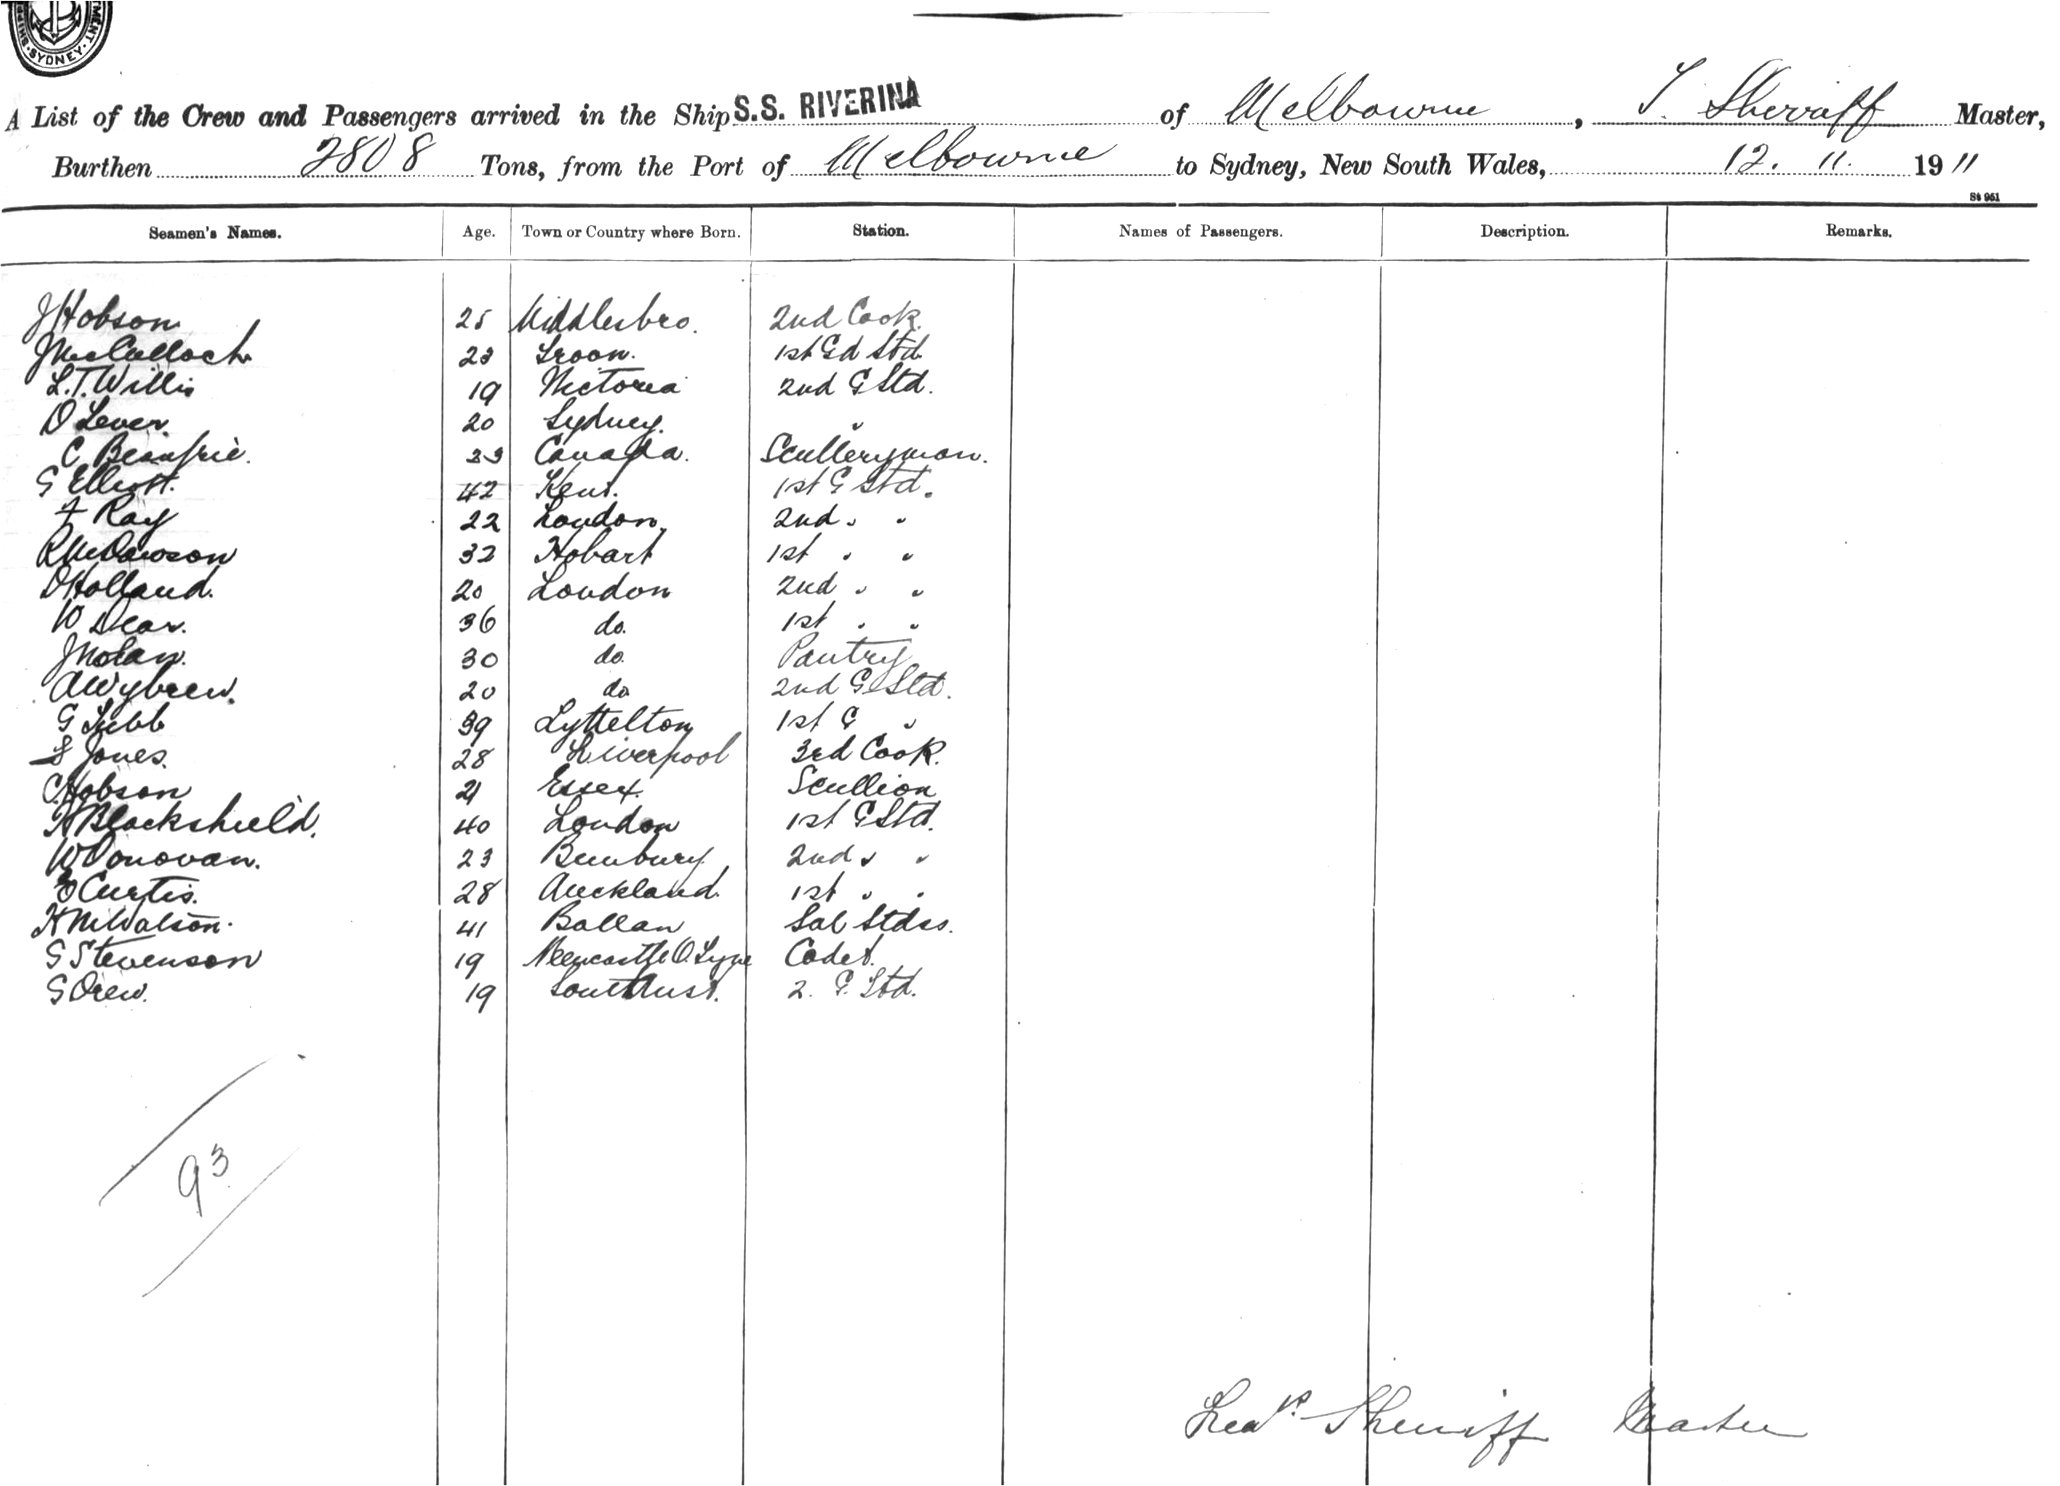 SYDNEY
A List of the Crew and Passengers arrived in the Ship S.S. RIVERINA of Melbourne, Sherriff Master,
Burthen 2808 Tons, from the Port of Melbourne to Sydney, New South Wales, 12. 11. 1911
St 951
Seamen's Names. Age. Town or Country where Born. Station. Names of Passengers. Description. Remarks.
J Hobson 25 Middlesbro. 2nd Cook.
J McCulloch 23 Troon. 1st Gd Std
L.T. Willis 19 Victoria 2nd G Std.
O Lever. 20 Sydney. "
C 33 Canada. Sculleryman.
G Elliott. 42 Kent. 1st G Std.
F Ray 22 London. 2nd " "
R 32 Hobart 1st " "
D Holland. 20 London 2nd " "
W Dear. 36 do. 1st " "
J Nolan. 30 do. Pantry
A Wybrew. 20 do 2nd G Std.
G Tubb 39 Lyttelton 1st G "
S Jones. 28 Liverpool 3rd Cook.
C. Hobson 21 Essex. Scullion
H Blackshield. 40 London 1st G Std.
W Donovan. 23 Bunbury 2nd " "
Curtis. 28 Auckland. 1st " "
K M Watson. 41 Ballan Sal Stdss.
G Stevenson 19 Newcastle O. Tyne Cadet.
G Drew. 19 South Aust. 2. G. Std.
93
Sherriff Master